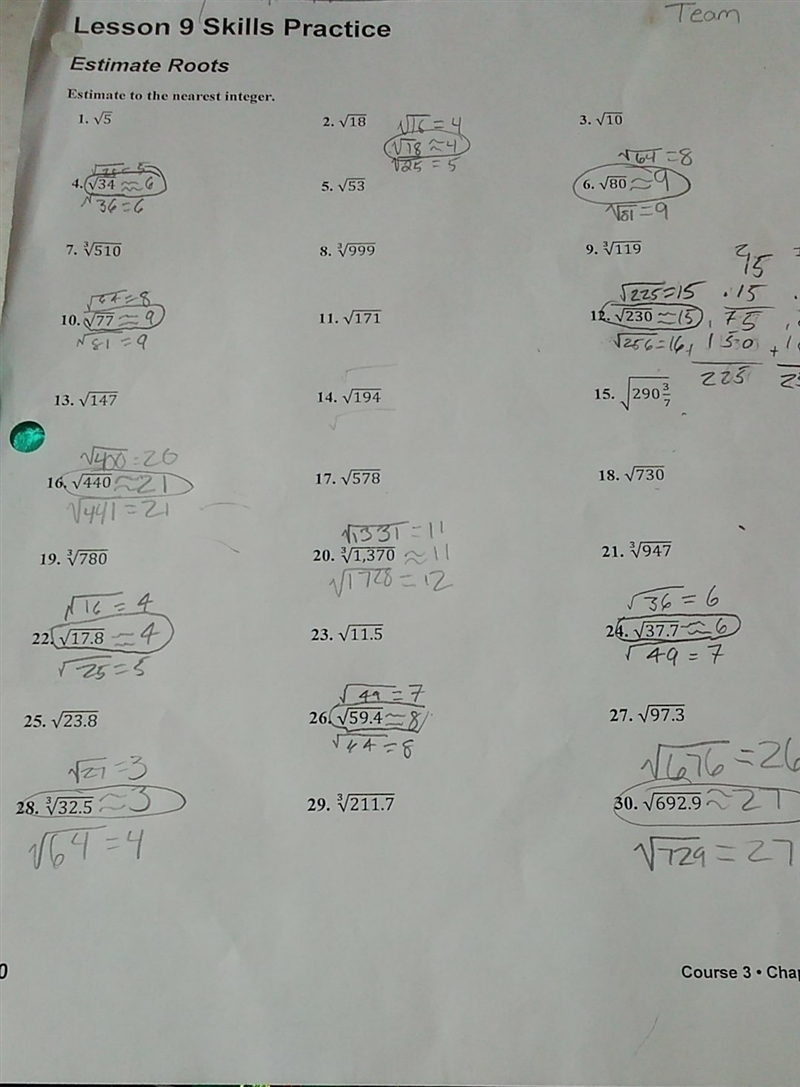 Team
Lesson 9 Skills Practice
Estimate Roots
Estimate to the nearest integer.
1. √5
2. √18
√16 = 4
√18 ≈ 4
√25 = 5
3. √10
√25 = 5
4. √34 ≈ 6
√36 = 6
5. √53
√64 = 8
6. √80 ≈ 9
√81 = 9
7. ∛510
8. ∛999
9. ∛119
√64 = 8
10. √77 ≈ 9
√81 = 9
11. √171
√225 = 15
12. √230 ≈ 15
√256 = 16
2
15
. 15
75
+ 150
225
13. √147
14. √194
15. √290 3/7
√400 = 20
16. √440 ≈ 21
√441 = 21
17. √578
18. √730
19. ∛780
√1331 = 11
20. ∛1,370 ≈ 11
√1728 = 12
21. ∛947
√16 = 4
22. √17.8 ≈ 4
√25 = 5
23. √11.5
√36 = 6
24. √37.7 ≈ 6
√49 = 7
25. √23.8
√49 = 7
26. √59.4 ≈ 8
√64 = 8
27. √97.3
√27 = 3
28. ∛32.5 ≈ 3
√64 = 4
29. ∛211.7
√676 = 26
30. √692.9 ≈ 27
√729 = 27
0
Course 3 • Chap